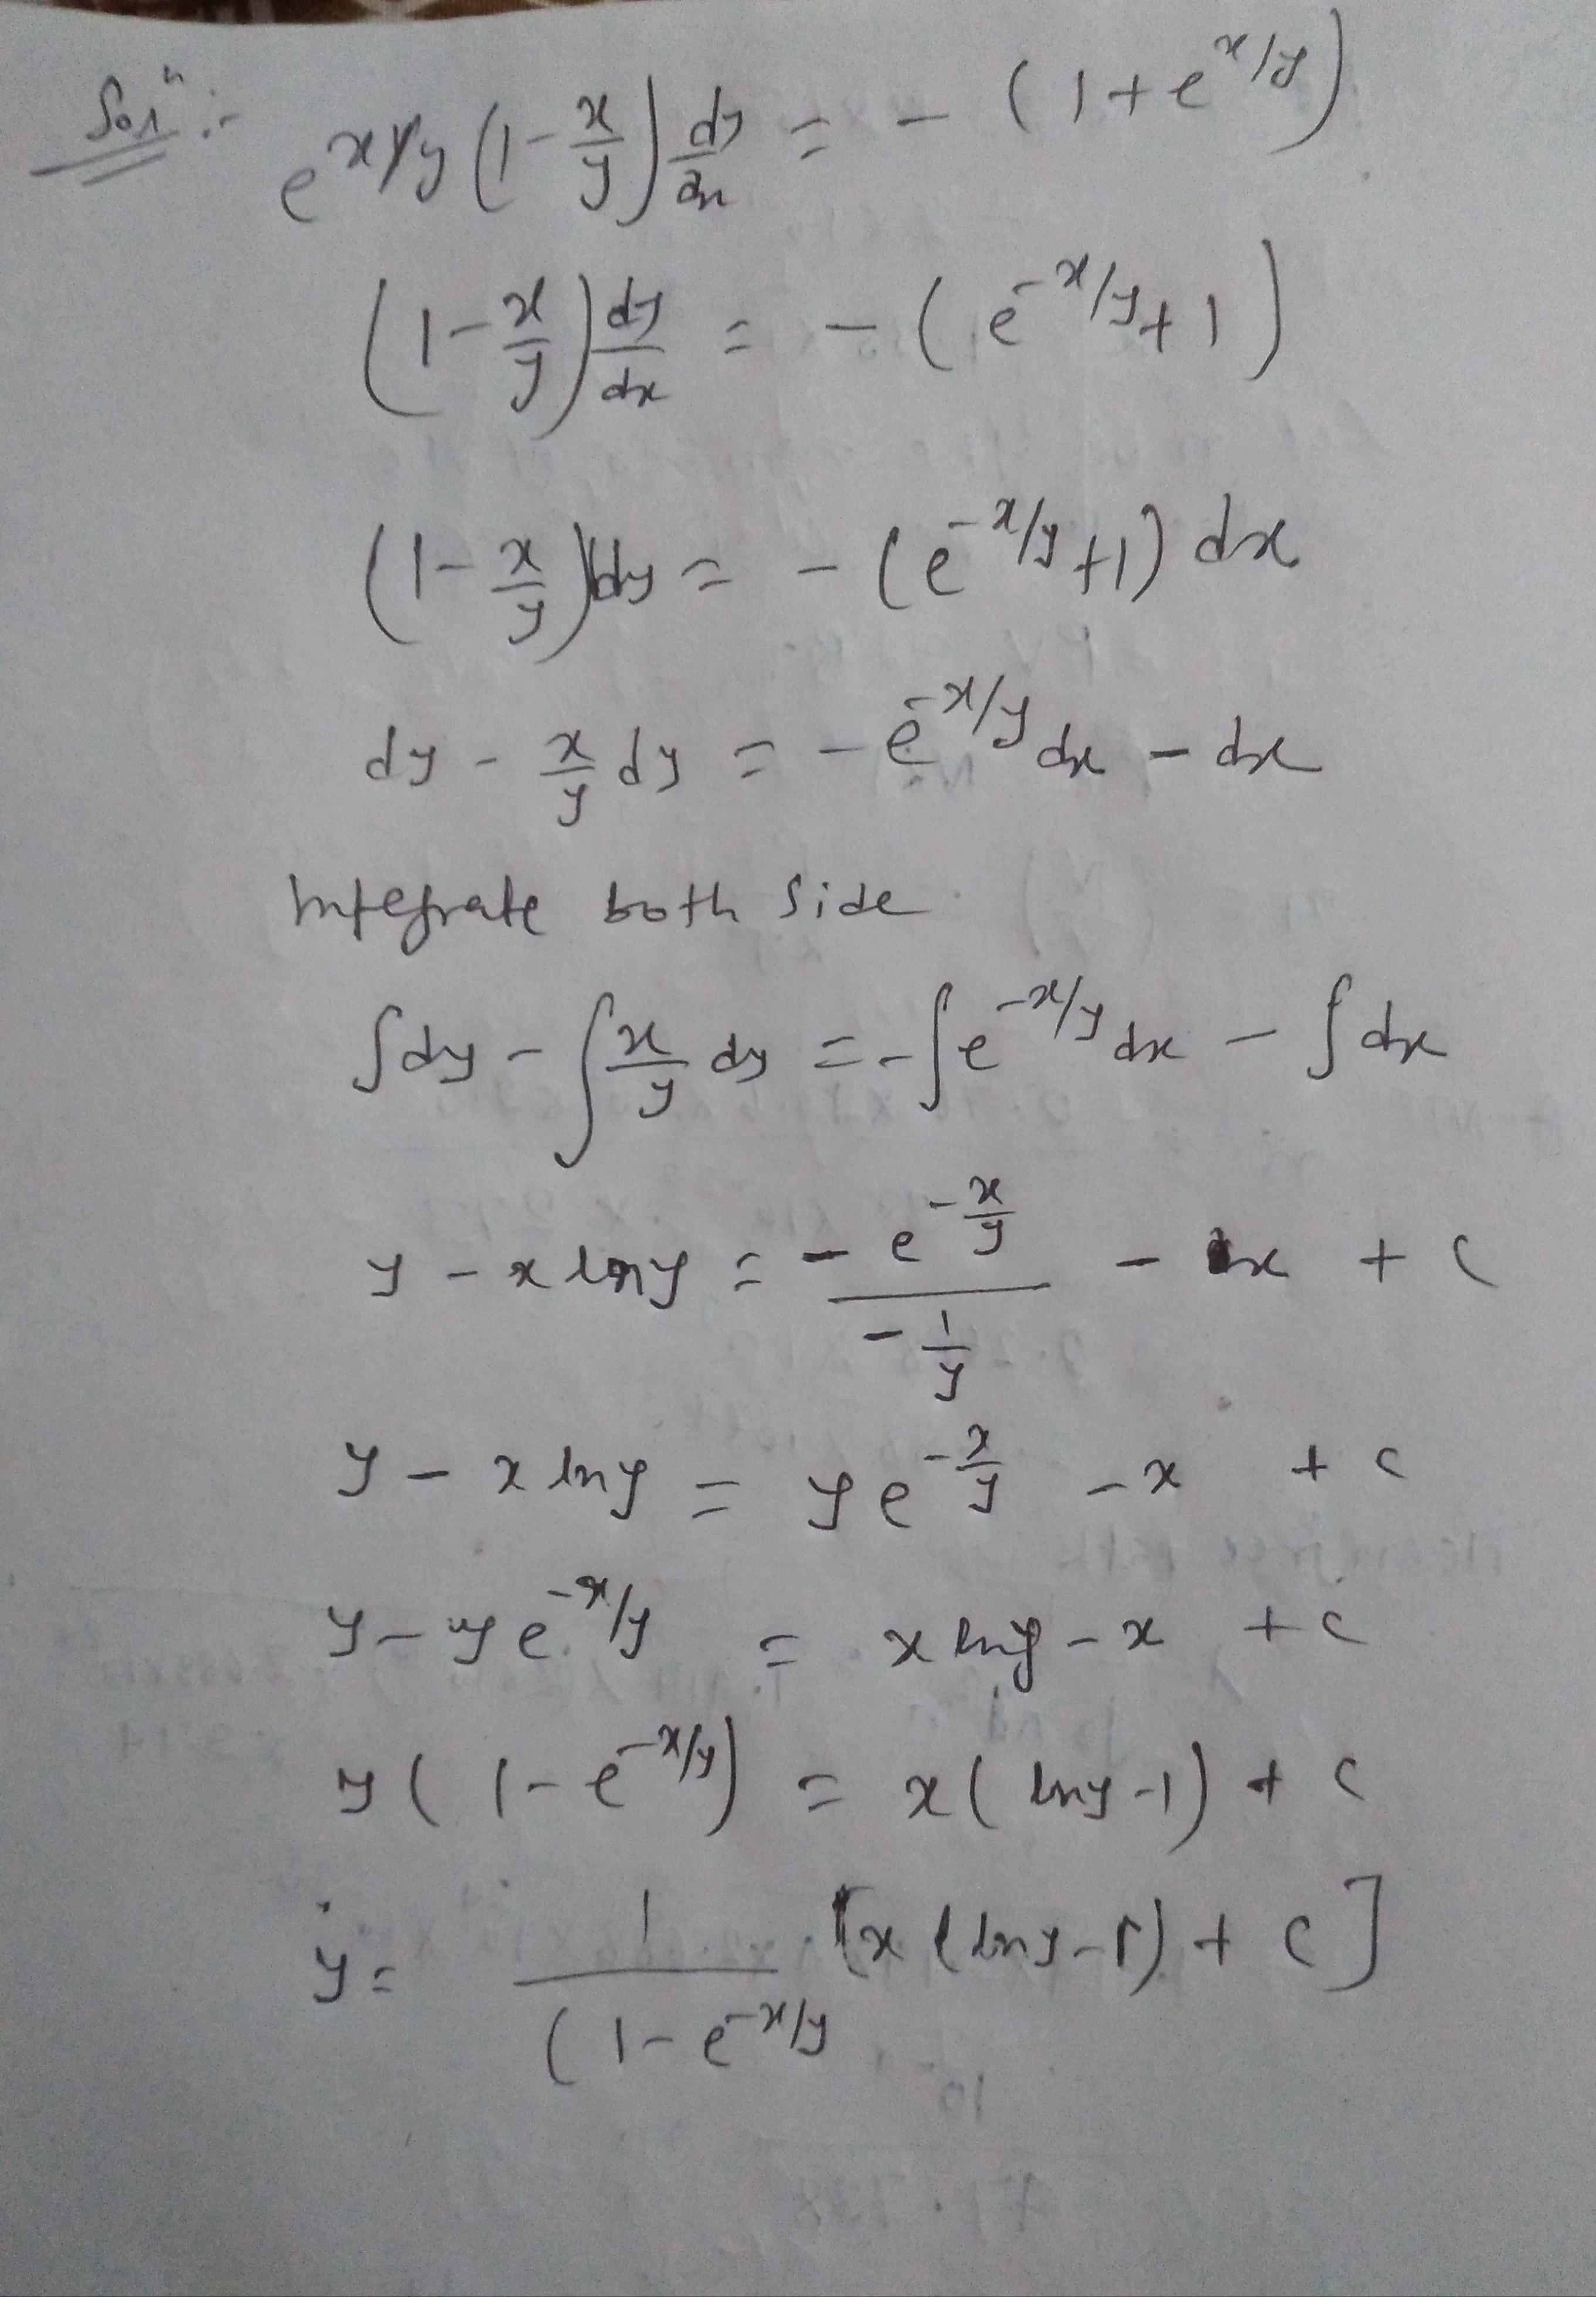 Solⁿ :-
e^{x/y} (1 - x/y) dy/dx = - (1 + e^{x/y})
(1 - x/y) dy/dx = - (e^{-x/y} + 1)
(1 - x/y) dy = - (e^{-x/y} + 1) dx
dy - x/y dy = - e^{-x/y} dx - dx
Integrate both side
∫dy - ∫ x/y dy = - ∫e^{-x/y} dx - ∫dx
y - x lny = - e^{-x/y} / (-1/y) - x + c
y - x lny = y e^{-x/y} - x + c
y - y e^{-x/y} = x lny - x + c
y ( 1 - e^{-x/y}) = x ( lny - 1) + c
y = 1 / (1 - e^{-x/y} [x (lny - 1) + c]